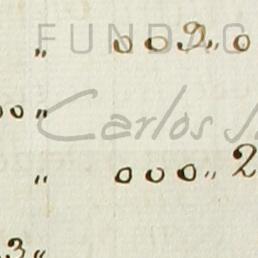 FUNDAC
„ 002„0
00 „
Carlos
„ 000„2
3„